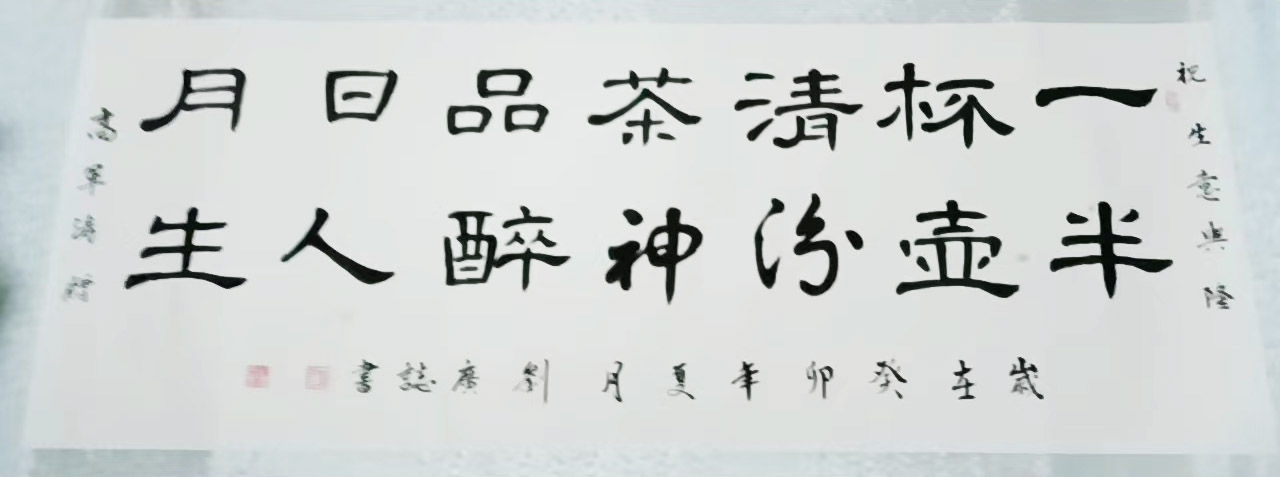 祝生意興隆
一杯清茶品日月
半壶汾神醉人生
歲在癸卯年夏月劉廣誌書
高軍濤贈